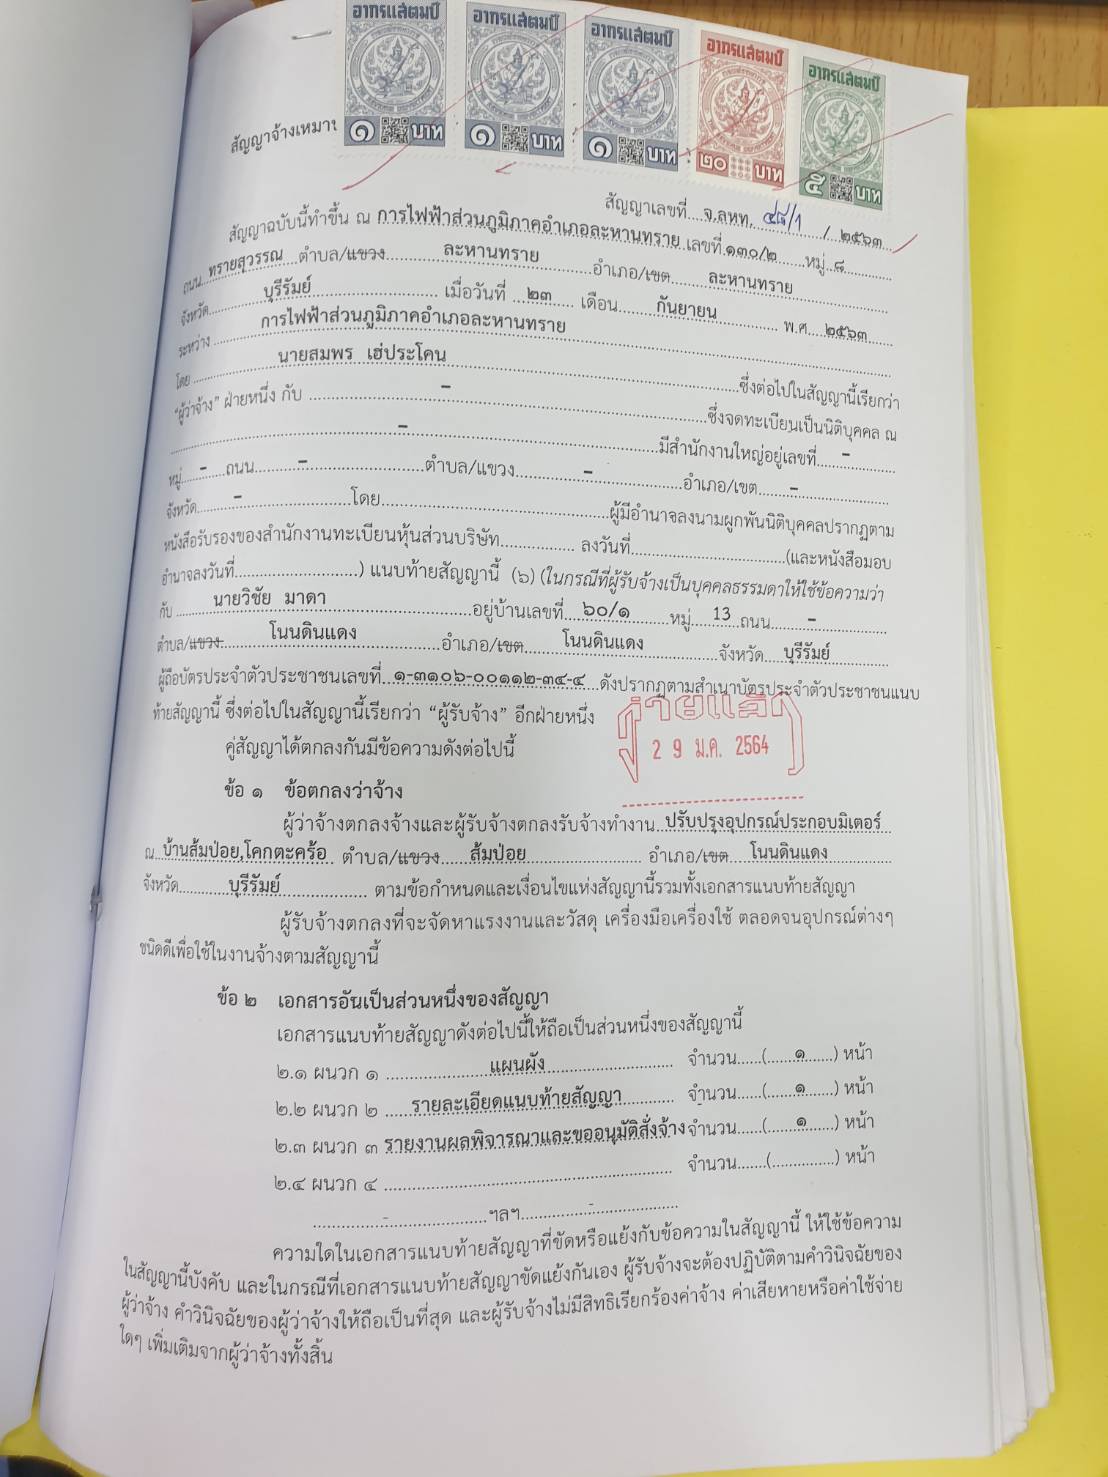 อากรแสตมป์ อากรแสตมป์ อากรแสตมป์ อากรแสตมป์ อากรแสตมป์
๑ บาท ๑ บาท ๑ บาท ๒๐ บาท ๕ บาท
สัญญาจ้างเหมา
สัญญาเลขที่....จ.ลหท. ๔๘/๑ / ๒๕๖๓
สัญญาฉบับนี้ทำขึ้น ณ การไฟฟ้าส่วนภูมิภาคอำเภอละหานทราย เลขที่ ๑๓๐/๒ หมู่ ๘
ถนน ทรายสุวรรณ ตำบล/แขวง ละหานทราย อำเภอ/เขต ละหานทราย
จังหวัด บุรีรัมย์ เมื่อวันที่ ๒๓ เดือน กันยายน พ.ศ. ๒๕๖๓
ระหว่าง การไฟฟ้าส่วนภูมิภาคอำเภอละหานทราย
โดย นายสมพร เฮ่ประโคน ซึ่งต่อไปในสัญญานี้เรียกว่า
“ผู้ว่าจ้าง” ฝ่ายหนึ่ง กับ - ซึ่งจดทะเบียนเป็นนิติบุคคล ณ
- มีสำนักงานใหญ่อยู่เลขที่ -
หมู่ - ถนน - ตำบล/แขวง - อำเภอ/เขต -
จังหวัด - โดย ผู้มีอำนาจลงนามผูกพันนิติบุคคลปรากฏตาม
หนังสือรับรองของสำนักงานทะเบียนหุ้นส่วนบริษัท ลงวันที่ (และหนังสือมอบ
อำนาจลงวันที่ ) แนบท้ายสัญญานี้ (๖) (ในกรณีที่ผู้รับจ้างเป็นบุคคลธรรมดาให้ใช้ข้อความว่า
กับ นายวิชัย มาดา อยู่บ้านเลขที่ ๖๐/๑ หมู่ 13 ถนน -
ตำบล/แขวง โนนดินแดง อำเภอ/เขต โนนดินแดง จังหวัด บุรีรัมย์
ผู้ถือบัตรประจำตัวประชาชนเลขที่ ๑-๓๑๐๖-๐๐๑๑๒-๓๔-๔ ดังปรากฏตามสำเนาบัตรประจำตัวประชาชนแนบ
ท้ายสัญญานี้ ซึ่งต่อไปในสัญญานี้เรียกว่า “ผู้รับจ้าง” อีกฝ่ายหนึ่ง
จ่ายแล้ว
2 9 ม.ค. 2564
คู่สัญญาได้ตกลงกันมีข้อความดังต่อไปนี้
ข้อ ๑ ข้อตกลงว่าจ้าง
ผู้ว่าจ้างตกลงจ้างและผู้รับจ้างตกลงรับจ้างทำงาน ปรับปรุงอุปกรณ์ประกอบมิเตอร์
ณ บ้านส้มป่อย,โคกตะคร้อ ตำบล/แขวง ส้มป่อย อำเภอ/เขต โนนดินแดง
จังหวัด บุรีรัมย์ ตามข้อกำหนดและเงื่อนไขแห่งสัญญานี้รวมทั้งเอกสารแนบท้ายสัญญา
ผู้รับจ้างตกลงที่จะจัดหาแรงงานและวัสดุ เครื่องมือเครื่องใช้ ตลอดจนอุปกรณ์ต่างๆ
ชนิดดีเพื่อใช้ในงานจ้างตามสัญญานี้
ข้อ ๒ เอกสารอันเป็นส่วนหนึ่งของสัญญา
เอกสารแนบท้ายสัญญาดังต่อไปนี้ให้ถือเป็นส่วนหนึ่งของสัญญานี้
๒.๑ ผนวก ๑ แผนผัง จำนวน.....(.....๑.....) หน้า
๒.๒ ผนวก ๒ รายละเอียดแนบท้ายสัญญา จำนวน.....(.....๑.....) หน้า
๒.๓ ผนวก ๓ รายงานผลพิจารณาและขออนุมัติสั่งจ้าง จำนวน.....(.....๑.....) หน้า
๒.๔ ผนวก ๔ จำนวน.....(..........) หน้า
- ฯลฯ -
ความใดในเอกสารแนบท้ายสัญญาที่ขัดหรือแย้งกับข้อความในสัญญานี้ ให้ใช้ข้อความ
ในสัญญานี้บังคับ และในกรณีที่เอกสารแนบท้ายสัญญาขัดแย้งกันเอง ผู้รับจ้างจะต้องปฏิบัติตามคำวินิจฉัยของ
ผู้ว่าจ้าง คำวินิจฉัยของผู้ว่าจ้างให้ถือเป็นที่สุด และผู้รับจ้างไม่มีสิทธิเรียกร้องค่าจ้าง ค่าเสียหายหรือค่าใช้จ่าย
ใดๆ เพิ่มเติมจากผู้ว่าจ้างทั้งสิ้น